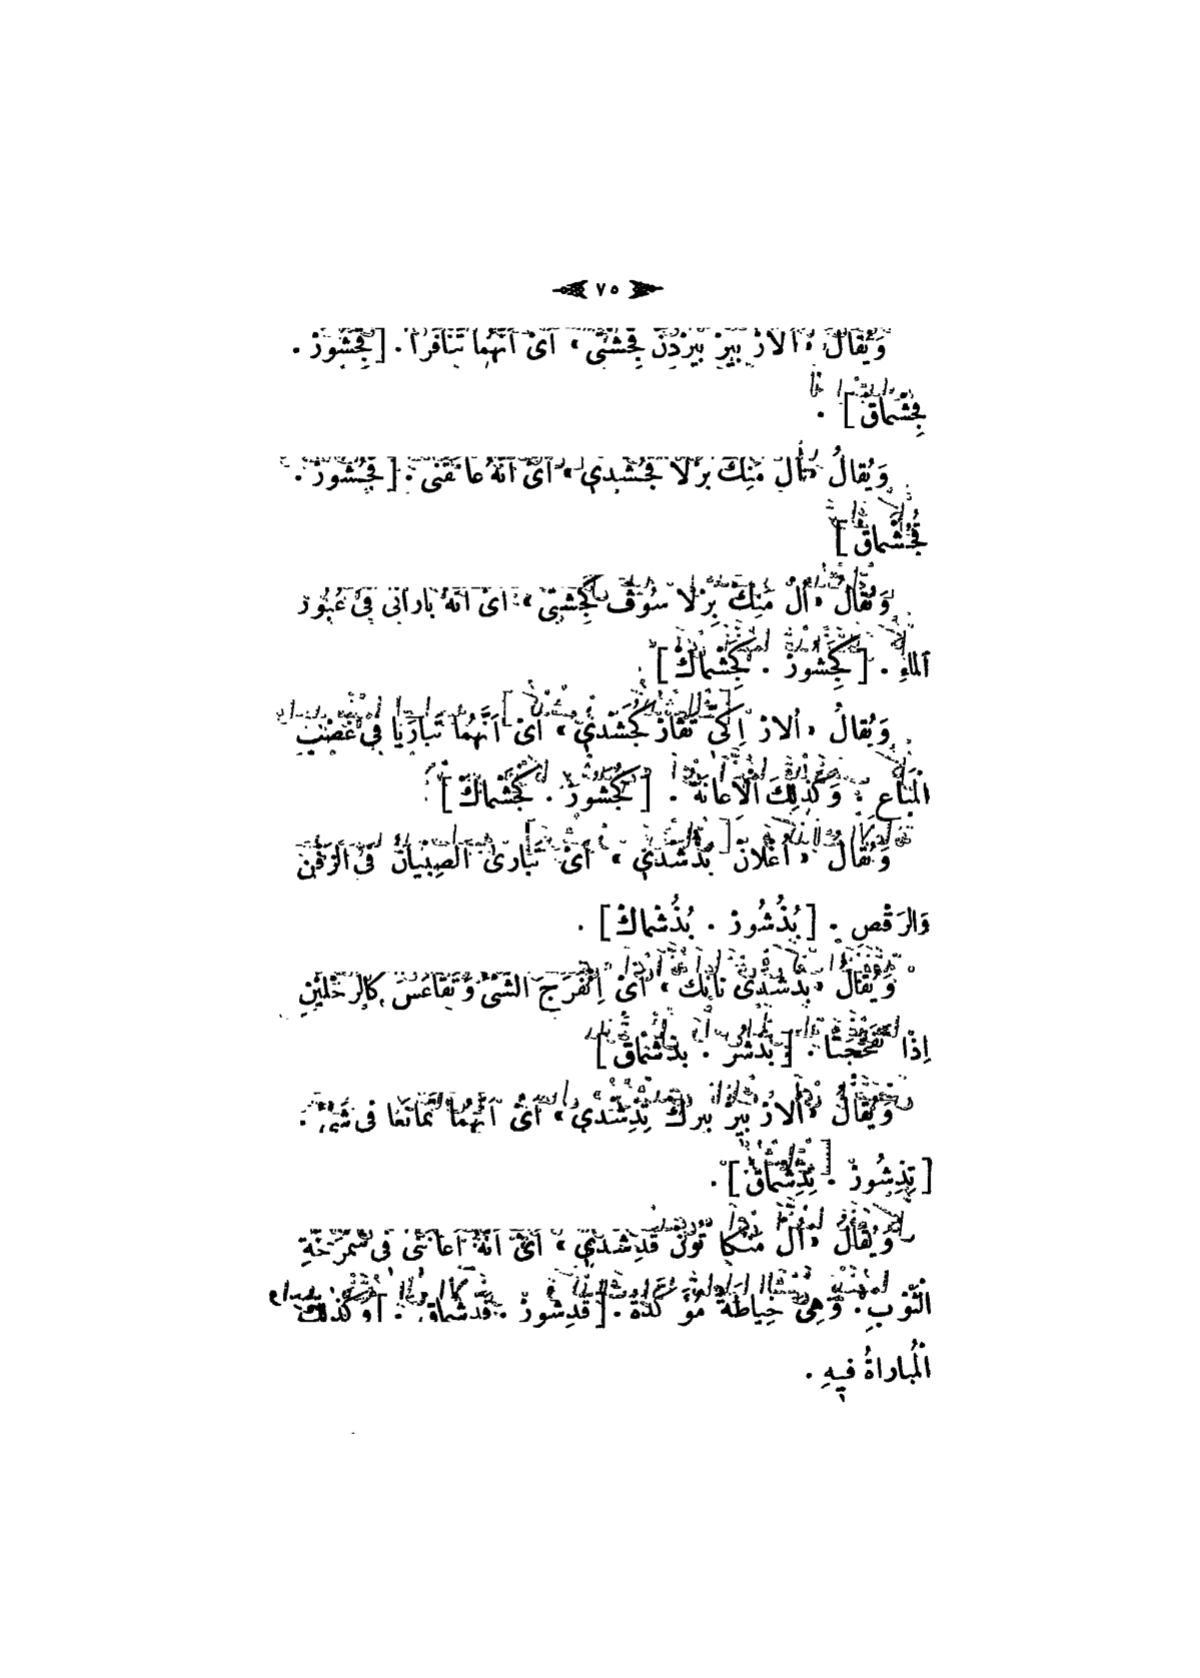 ٧٥
وَيُقالُ «اَلارْ بِيرْ بِيرْدِنْ قِجِشْتى» اَىْ اَنَّهُما تَنافَرا. [قِجِشُورْ .
قِجِشْماقْ] .
وَيُقالُ «اُلْ مَنِكْ بِرْلا قُجُشْدى» اَىْ اَنَّهُ عانَقَنى . [قُجُشُورْ .
قُجُشْماقْ]
وَيُقالُ «اُلْ مَنِكْ بِرْلا سُوفْ كَجِشْتى» اَىْ اَنَّهُ بارانى فى عُبُورِ
اَلماءِ . [كَجِشُورْ . كَجِشْماكْ]
وَيُقالُ «اُلارْ اِكّى تَفارْ كَجَشْدى» اَىْ اَنَّهُما تَبارَيا فى غَصْبِ
الْمَتاعِ . وَكَذلِكَ الْاَعانَةُ . [كَجُشُورْ . كَجْشْماكْ]
وَيُقالُ «اُغْلانْ بُذُشْدى» اَىْ تَبارىٰ الصِبْيانُ فى الزَفْنِ
وَالرَقْصِ . [بُذُشُورْ . بُذُشْماكْ] .
وَيُقالُ «بَدْشْدى نانِكْ» اَىْ اِنْفَرَجَ الشَىْءُ وَتَقاعَسَ كالرِجْلَيْنِ
اِذا تَفَحَّجَتا . [بَدْشُرْ . بَدْشْماقْ]
وَيُقالُ «اُلارْ بِيرْ بيركْ تِذِشْدى» اَىْ اَنَّهُما تَمانَعا فى شَىْءٍ .
[تِذِشُورْ . تِذِشْماقْ] .
وَيُقالُ «اُلْ مَنْكا تُونْ قَدِشْدى» اَىْ اَنَّهُ اَعانَنى فى شَمْرَخَةِ
الثَوْبِ. وَهِىَ خِياطَةٌ مُؤَكَّدَةٌ . [قَدِشُورْ . قَدِشْماقْ . اَوْكَذلِكَ
الْمُباراةُ فيهِ .